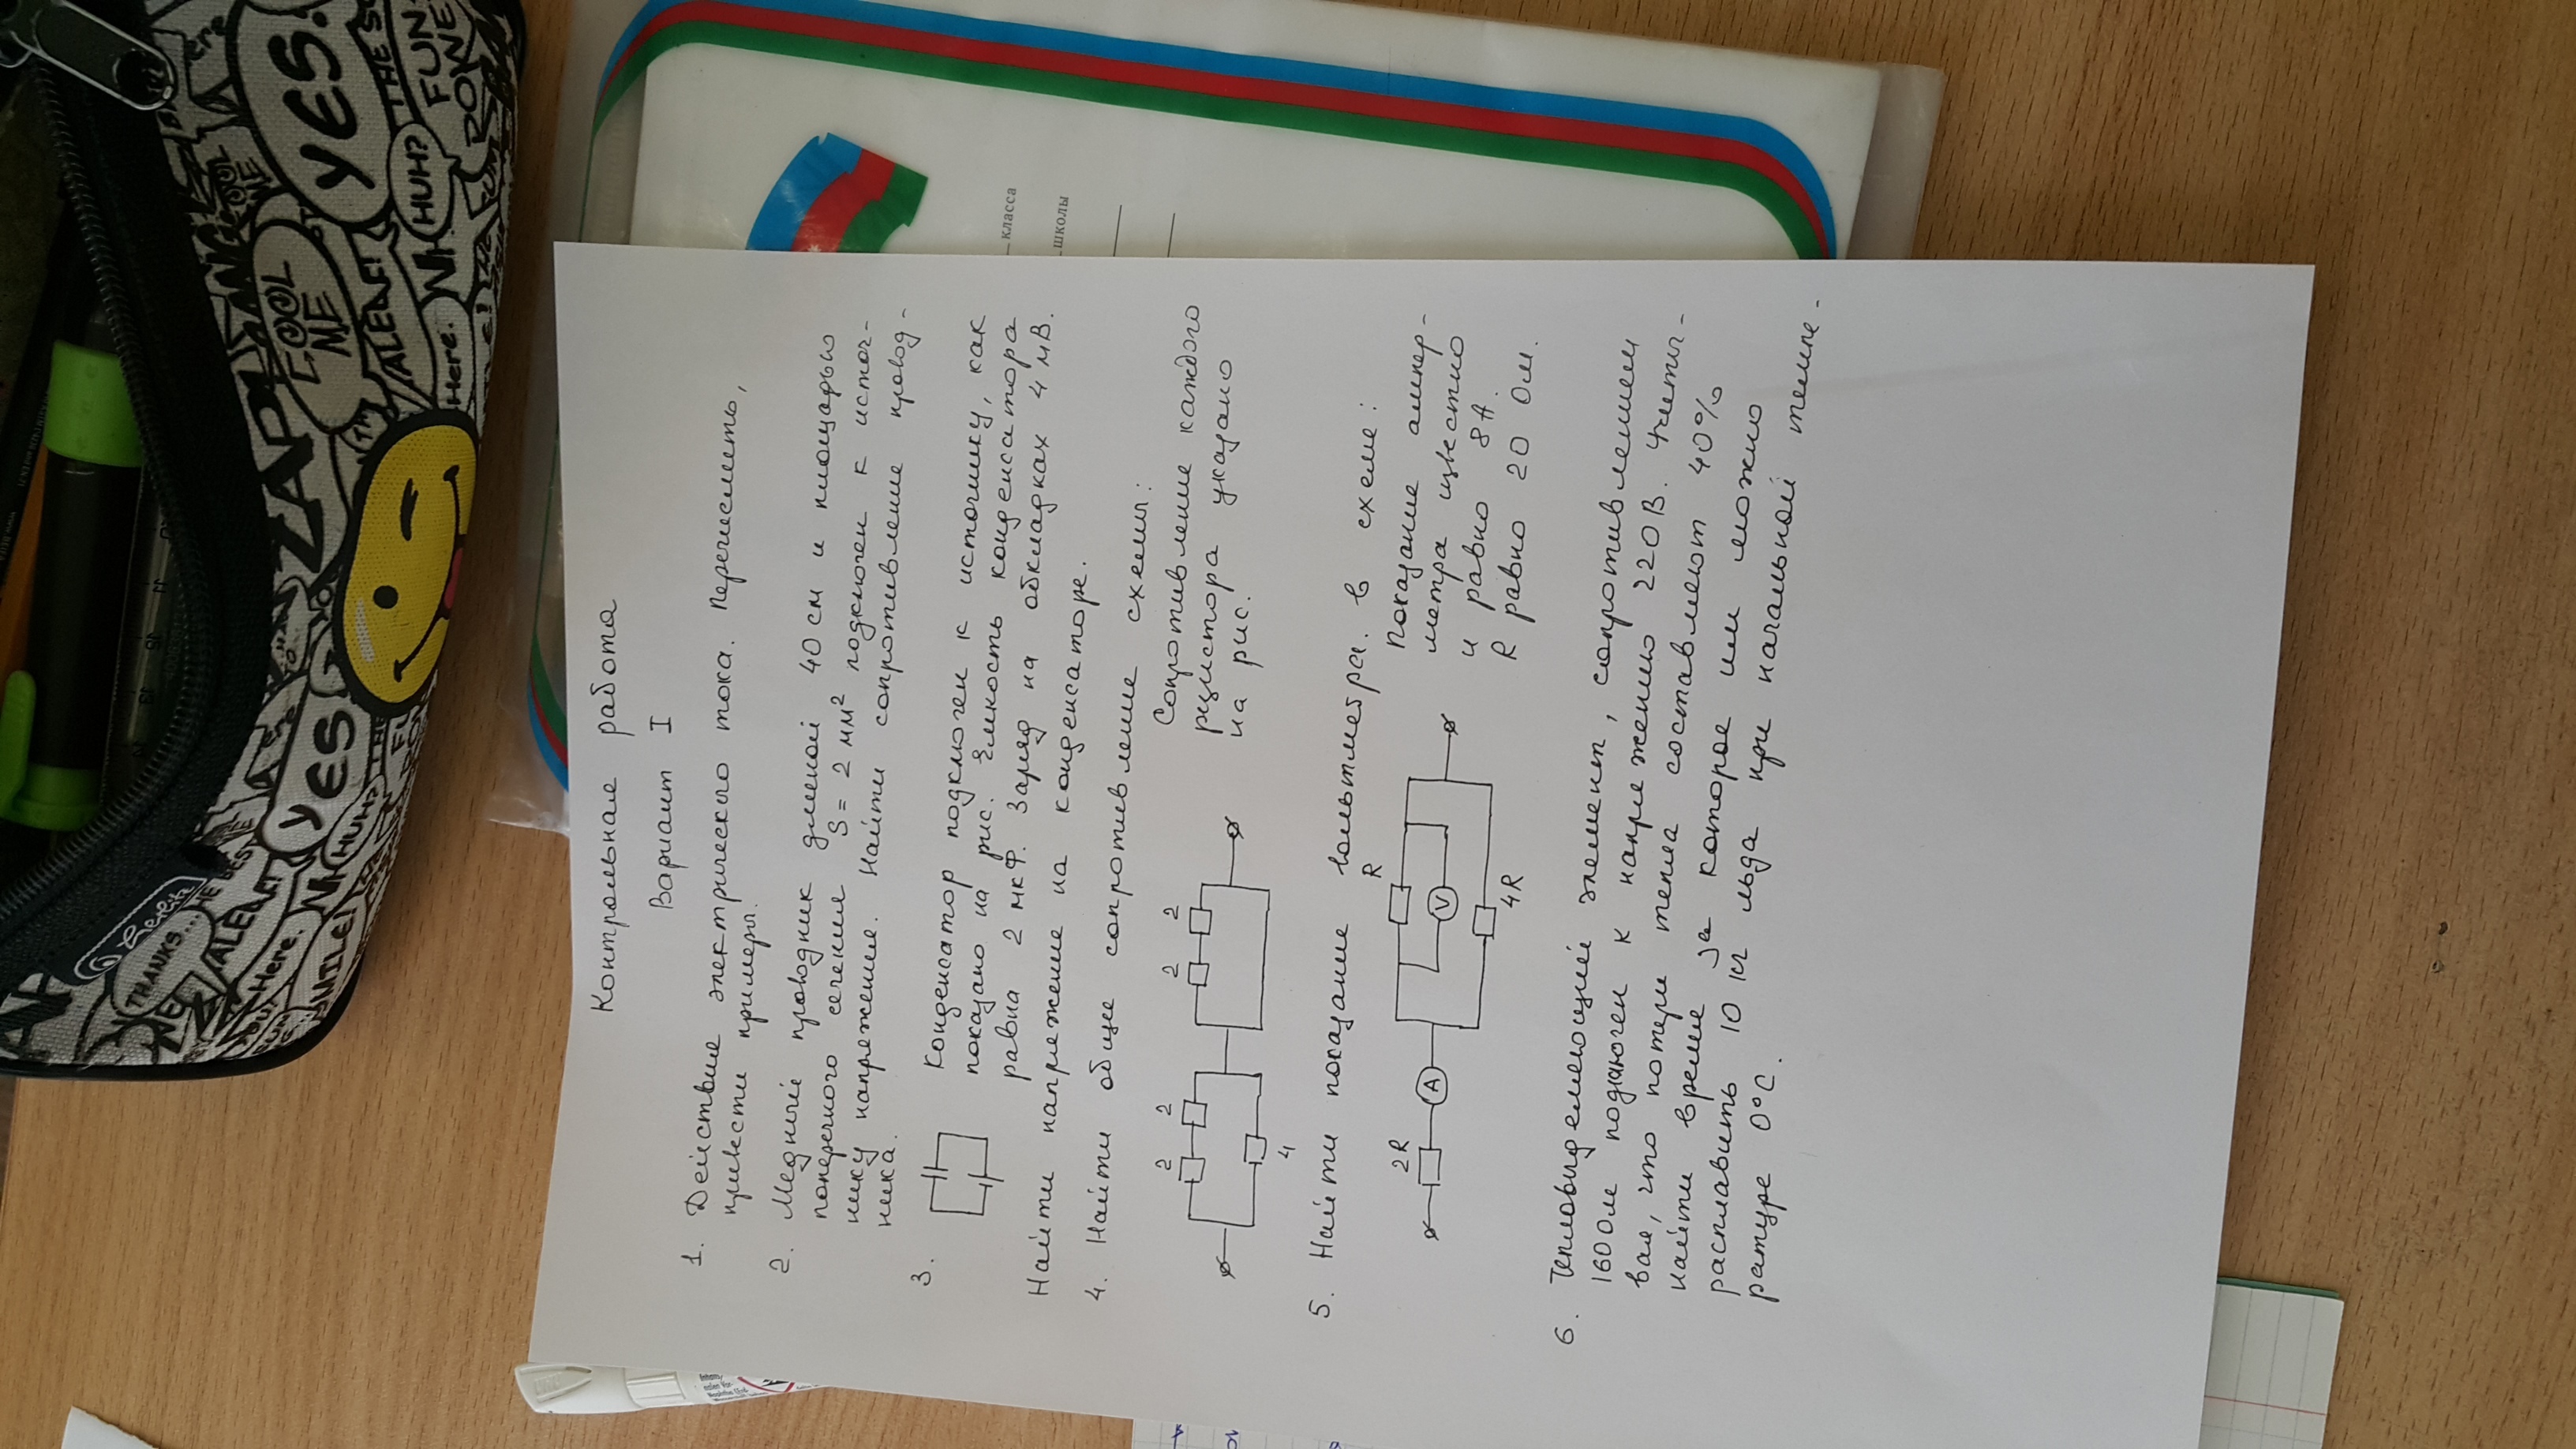 Контрольная работа
Вариант I
1. Действие электрического тока. Перечислить,
привести примеры.
2. Медный проводник длиной 40 см и площадью
поперечного сечения S = 2 мм² подключен к источ-
нику напряжения. Найти сопротивление провод-
ника.
3. Конденсатор подключен к источнику, как
показано на рис. Ёмкость конденсатора
равна 2 мкФ. Заряд на обкладках 4 мВ.
Найти напряжение на конденсаторе.
4. Найти общее сопротивление схемы:
2 2 2 2
4
Сопротивление каждого
резистора указано
на рис.
5. Найти показание вольтметра в схеме:
2R A R V 4R
Показание ампер-
метра известно
и равно 8А.
R равно 20 Ом.
6. Тепловыделяющий элемент, сопротивлением
160 Ом подключен к напряжению 220 В. Учиты-
вая, что потери тепла составляют 40%
найти время за которое им можно
расплавить 10 кг льда при начальной темпе-
ратуре 0°С.
класса
школы
YES!
FUN
HUH?
COOL
ME
Here.
TALENT
ZAP!
YES
HUH?
THANKS...
TALENT
Here.
SMILE!